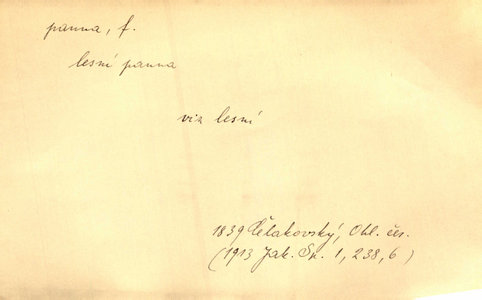 panna, f.
lesní panna
viz lesní
1839 Čelakovský, Ohl. čes.
(1913 Jak. Sn. 1, 238, 6)